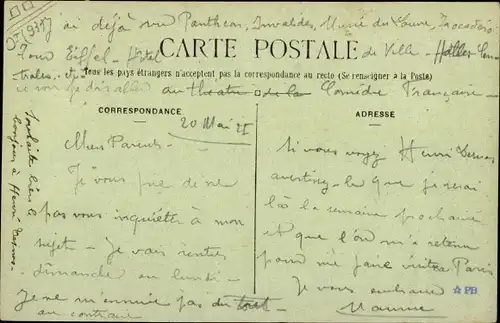 j'ai déjà vu Pantheon, Invalides, Musée du Louvre, Trocadéro
Tour Eiffel - Hôtel
CARTE POSTALE
de Ville - Halles Cen
trales,
Tous les pays étrangers n'acceptent pas la correspondance au recto (Se renseigner à la Poste)
ce soir je dois aller au theatre de la Comédie Française -
CORRESPONDANCE
ADRESSE
20 Mai
Mes Parents -
Je vous prie de ne
pas vous inquiété à mon
sujet - Je vais rentrer
dimanche ou lundi -
Je ne m'ennuie pas du tout
au contraire
Si vous voyez Henri
avertissez-le que je serai
là la semaine prochaine
et que l'on m'a retenu
pour me faire visiter Paris
Je vous embrasse
Maurice
bonjour à Henri
PB